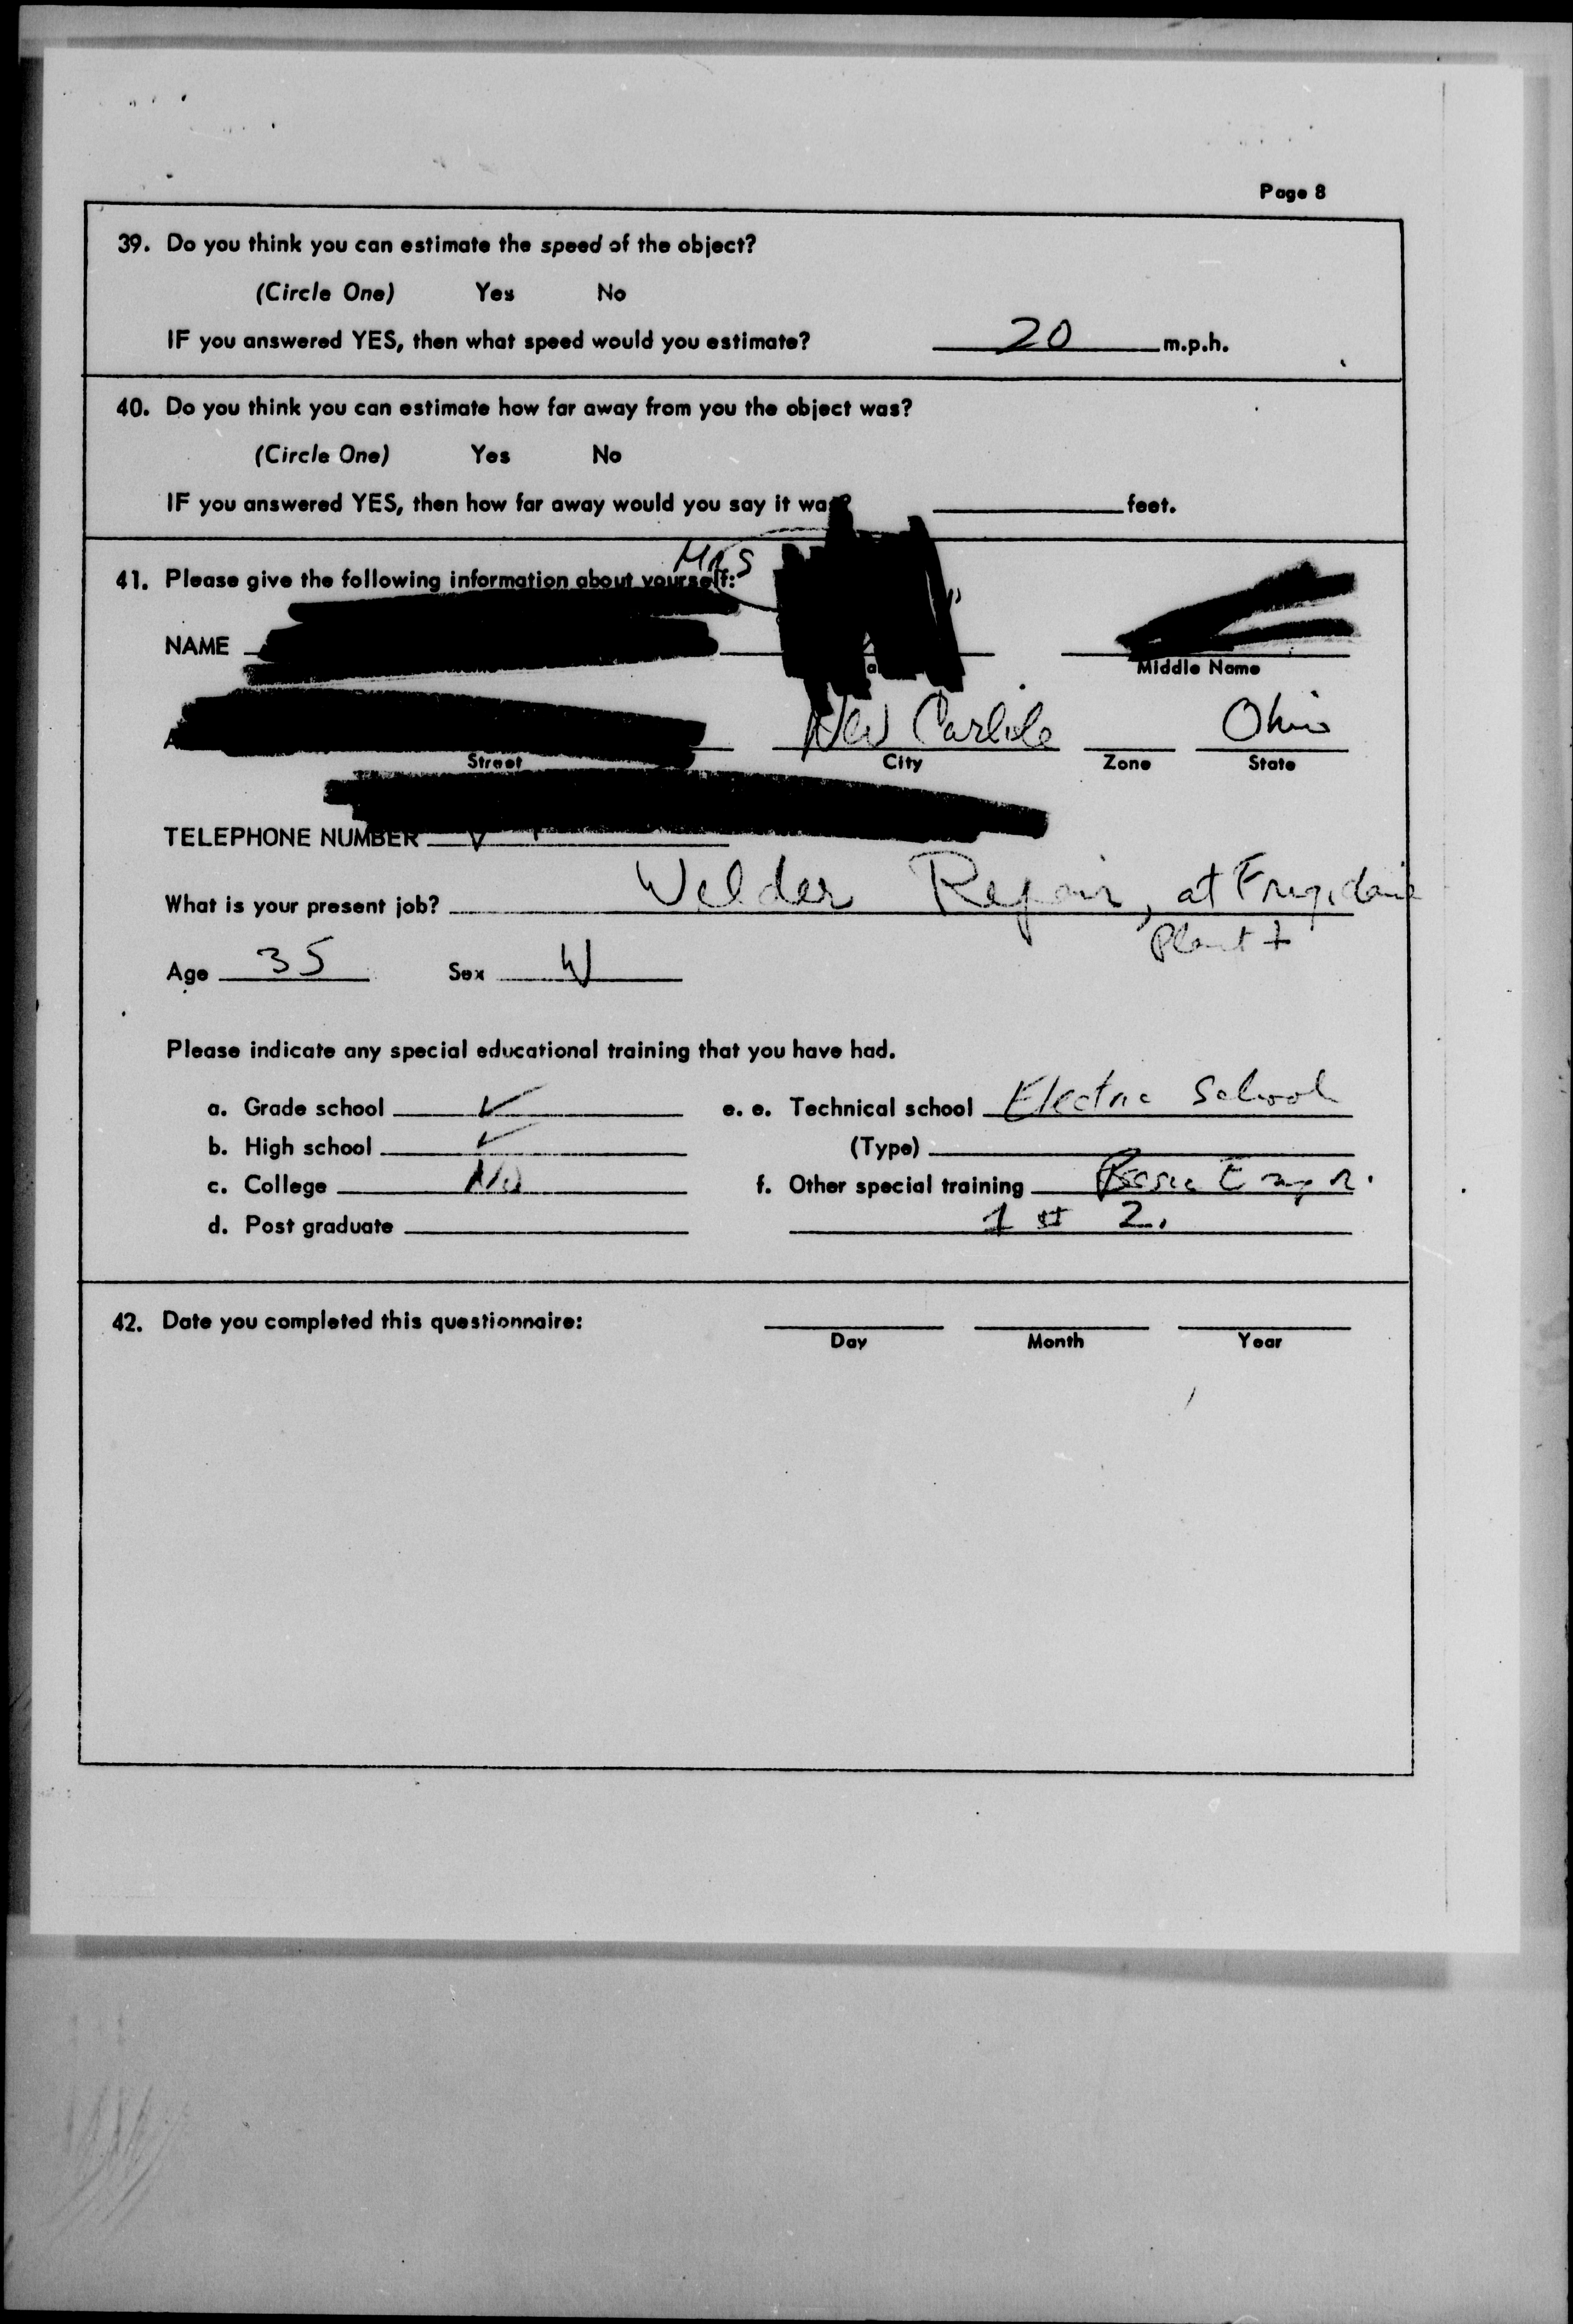 Page 8
39. Do you think you can estimate the speed of the object?
(Circle One) Yes No
IF you answered YES, then what speed would you estimate? 20 m.p.h.
40. Do you think you can estimate how far away from you the object was?
(Circle One) Yes No
IF you answered YES, then how far away would you say it was? feet.
Mrs
41. Please give the following information about yourself:
NAME
Middle Name
New Carlile Ohio
Street City Zone State
TELEPHONE NUMBER
What is your present job? Welder Repair, at Frigidaire
Plant
Age 35 Sex W
Please indicate any special educational training that you have had.
a. Grade school ✓ e. e. Technical school Electric School
b. High school ✓ (Type)
c. College No f. Other special training
d. Post graduate 1 2.
42. Date you completed this questionnaire:
Day Month Year